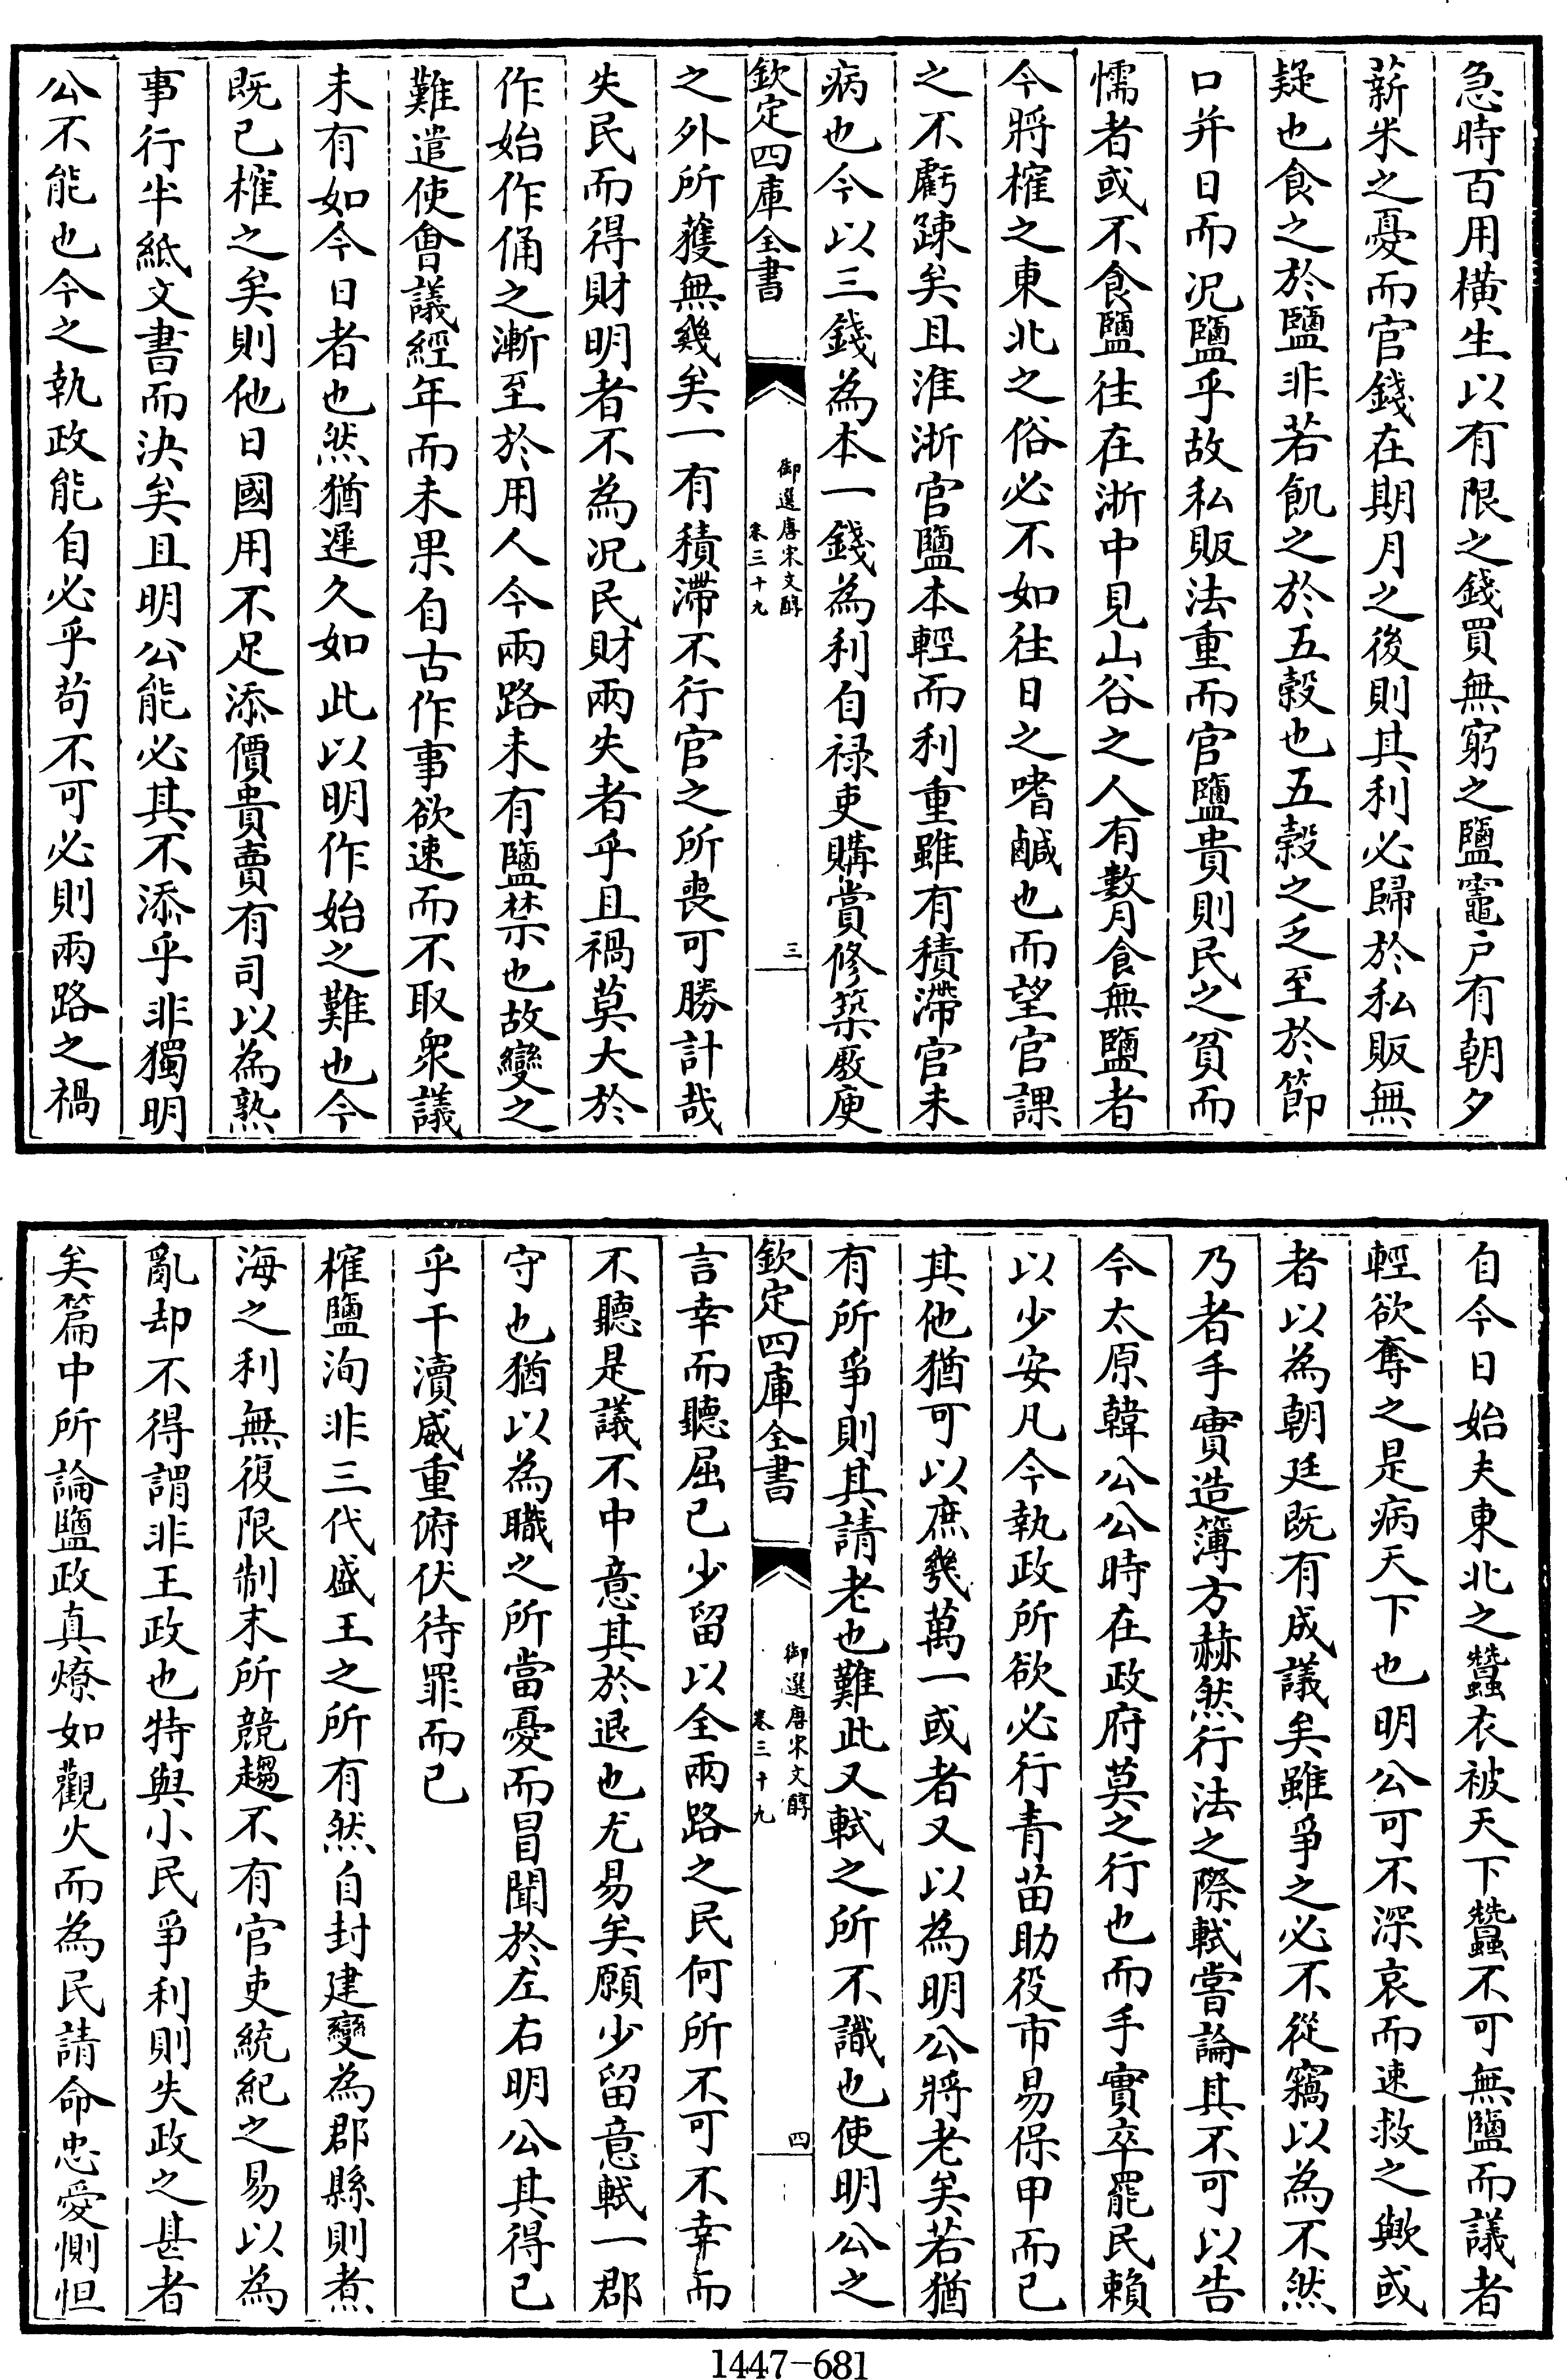 急時百用橫生以有限之錢買無窮之鹽竈户有朝夕
薪米之憂而官錢在期月之後則其利必歸於私販無
疑也食之於鹽非若飢之於五穀也五穀之乏至於節
口并日而况鹽乎故私販法重而官鹽貴則民之貧而
懦者或不食鹽往在浙中見山谷之人有數月食無鹽者
今將榷之東北之俗必不如往日之嗜鹹也而望官課
之不虧踈矣且淮浙官鹽本輕而利重雖有積滯官未
病也今以三錢為本一錢為利自禄吏購賞修築厫庾
欽定四庫全書
御選唐宋文醇
卷三十九
三
之外所獲無幾矣一有積滯不行官之所喪可勝計哉
失民而得財明者不為况民財兩失者乎且禍莫大於
作始作俑之漸至於用人今兩路未有鹽禁也故變之
難遣使會議經年而未果自古作事欲速而不取衆議
未有如今日者也然猶遲久如此以明作始之難也今
既已榷之矣則他日國用不足添價貴賣有司以為熟
事行半紙文書而決矣且明公能必其不添乎非獨明
公不能也今之執政能自必乎苟不可必則兩路之禍
自今日始夫東北之蠶衣被天下蠶不可無鹽而議者
輕欲奪之是病天下也明公可不深哀而速救之歟或
者以為朝廷既有成議矣雖爭之必不從竊以為不然
乃者手實造簿方赫然行法之際軾嘗論其不可以告
今太原韓公公時在政府莫之行也而手實卒罷民賴
以少安凡今執政所欲必行青苗助役市易保甲而已
其他猶可以庶幾萬一或者又以為明公將老矣若猶
有所爭則其請老也難此又軾之所不識也使明公之
欽定四庫全書
御選唐宋文醇
卷三十九
四
言幸而聽屈已少留以全兩路之民何所不可不幸而
不聽是議不中意其於退也尤易矣願少留意軾一郡
守也猶以為職之所當憂而冒聞於左右明公其得已
乎干瀆威重俯伏待罪而已
榷鹽洵非三代盛王之所有然自封建變為郡縣則煮
海之利無復限制末所競趨不有官吏統紀之易以為
亂却不得謂非王政也特與小民爭利則失政之甚者
矣篇中所論鹽政真燎如觀火而為民請命忠愛惻怛
1447-681